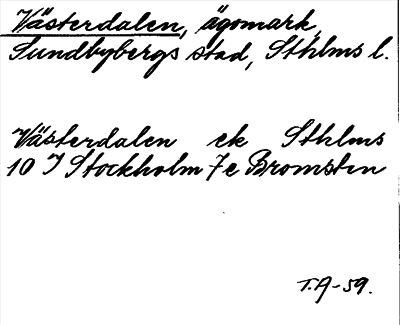 Västerdalen, ägomark,
Sundbybergs stad, Sthlms l.
Västerdalen ek Sthlms
10 I Stockholm 7e Bromsten
T.A-59.